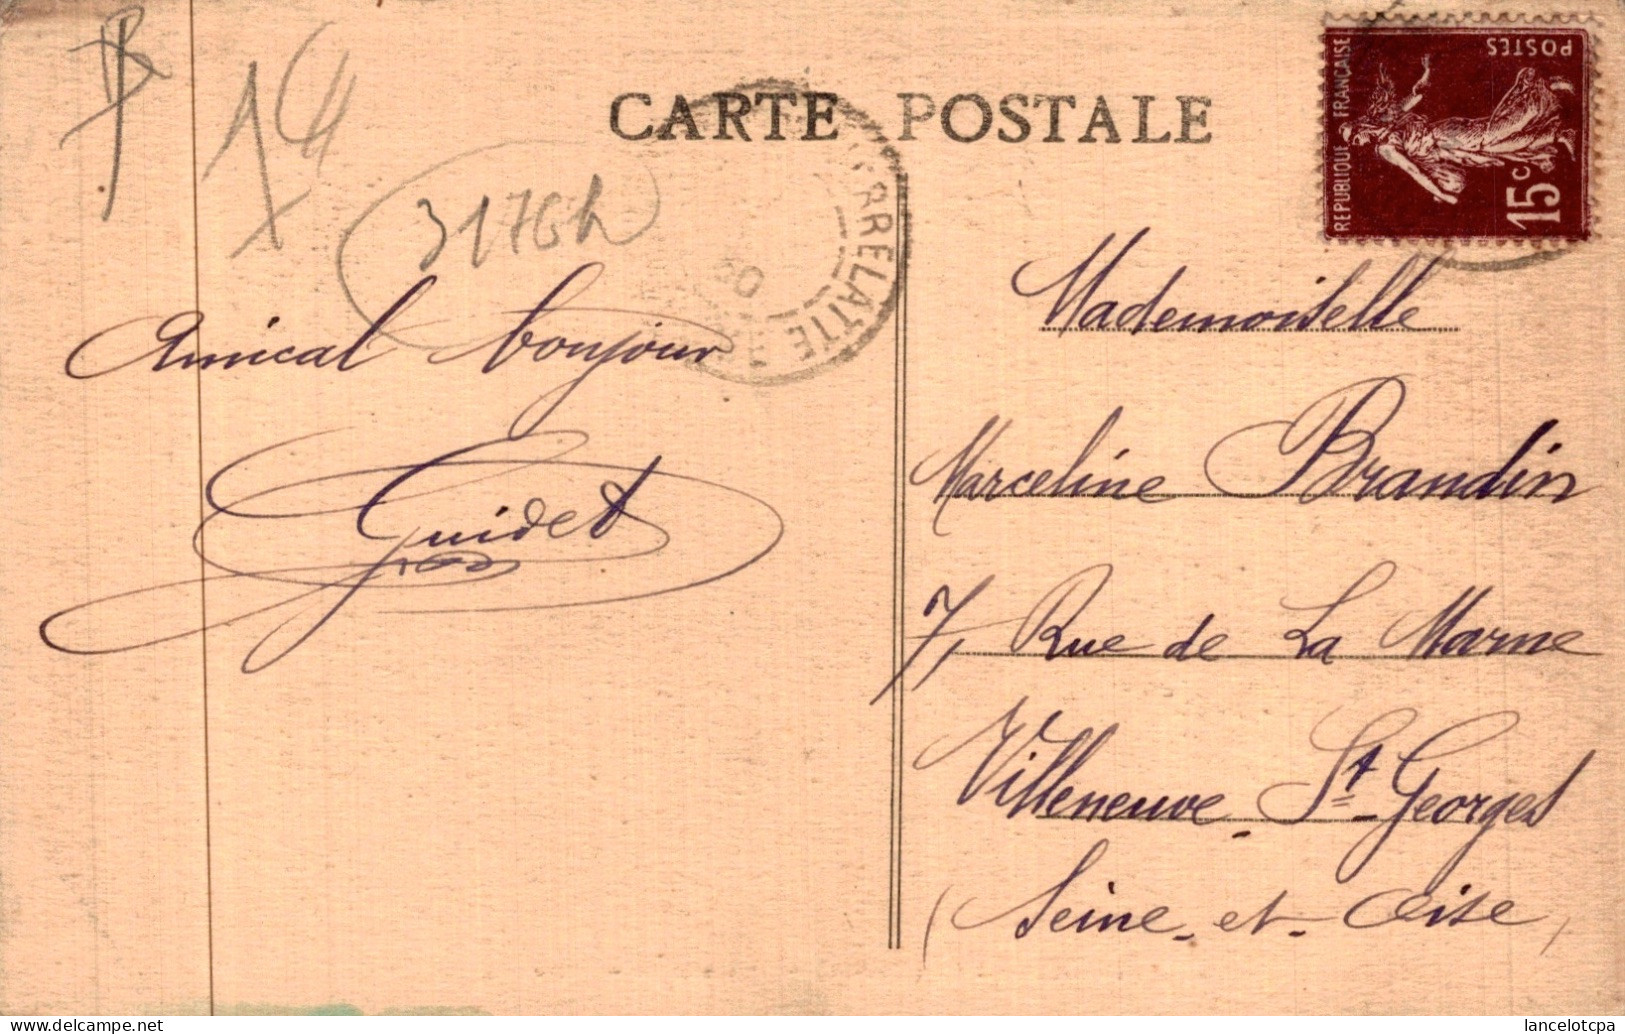 CARTE POSTALE
REPUBLIQUE FRANÇAISE
POSTES
15c
RRELATTE
30
3176h
Amical bonjour
Guidet
Mademoiselle
Marceline Brandin
7, Rue de La Marne
Villeneuve-St-Georges
(Seine-et-Oise)
www.lancelotcpa.com